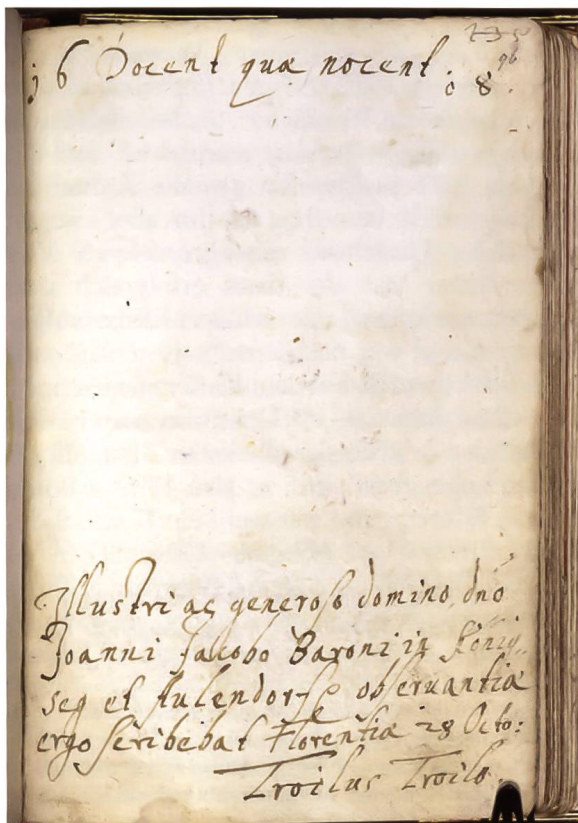 235
96
16 Docent quæ nocent. 08.
Illustri ac generoso domino, dno
Joanni Jacobo Baroni in König„
seg et Aulendorf observantiæ
ergo scribebat Florentiæ 28 Octo:
Troilus Troilo.